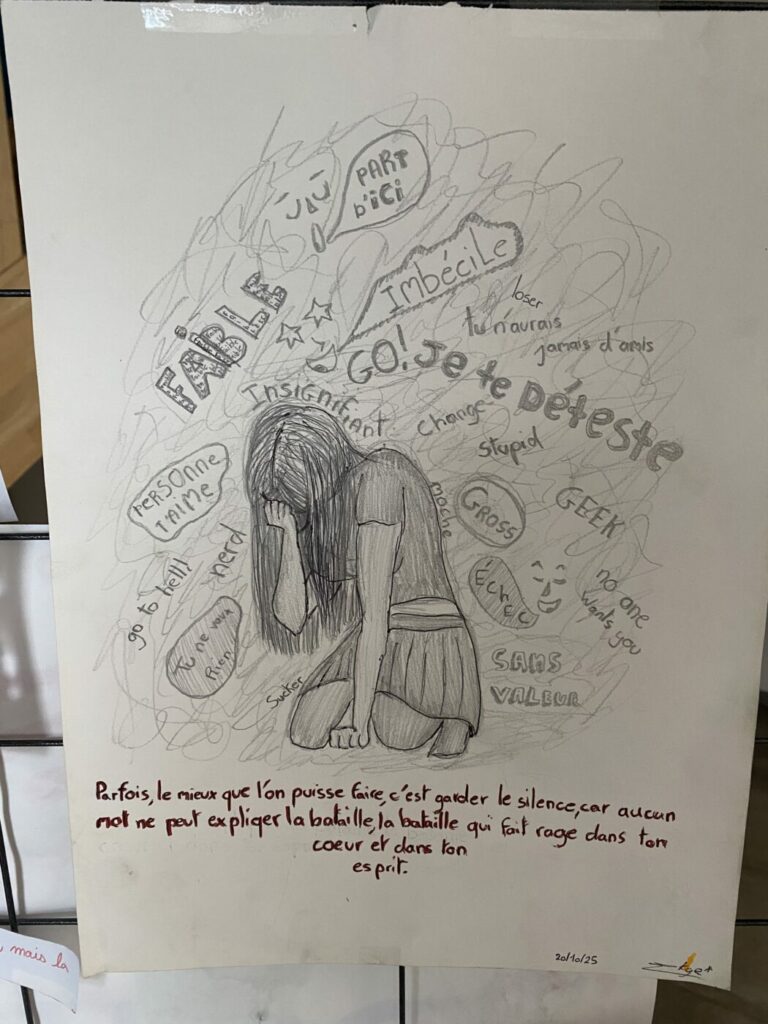 PART
D'ICI
IMBÉCILE
FAIBLE
loser
tu n'aurais
jamais d'amis
GO! Je te Déteste
Insignifiant
change
stupid
PERSONNE
T'AIME
moche
GROSS
GEEK
nerd
go to hell!
ÉCHEC
no one
wants you
Tu ne vaux
Rien
SANS
VALEUR
Sucker
Parfois, le mieux que l'on puisse faire, c'est garder le silence, car aucun
mot ne peut expliqer la bataille, la bataille qui fait rage dans ton
coeur et dans ton
esprit.
20/10/25
mais la